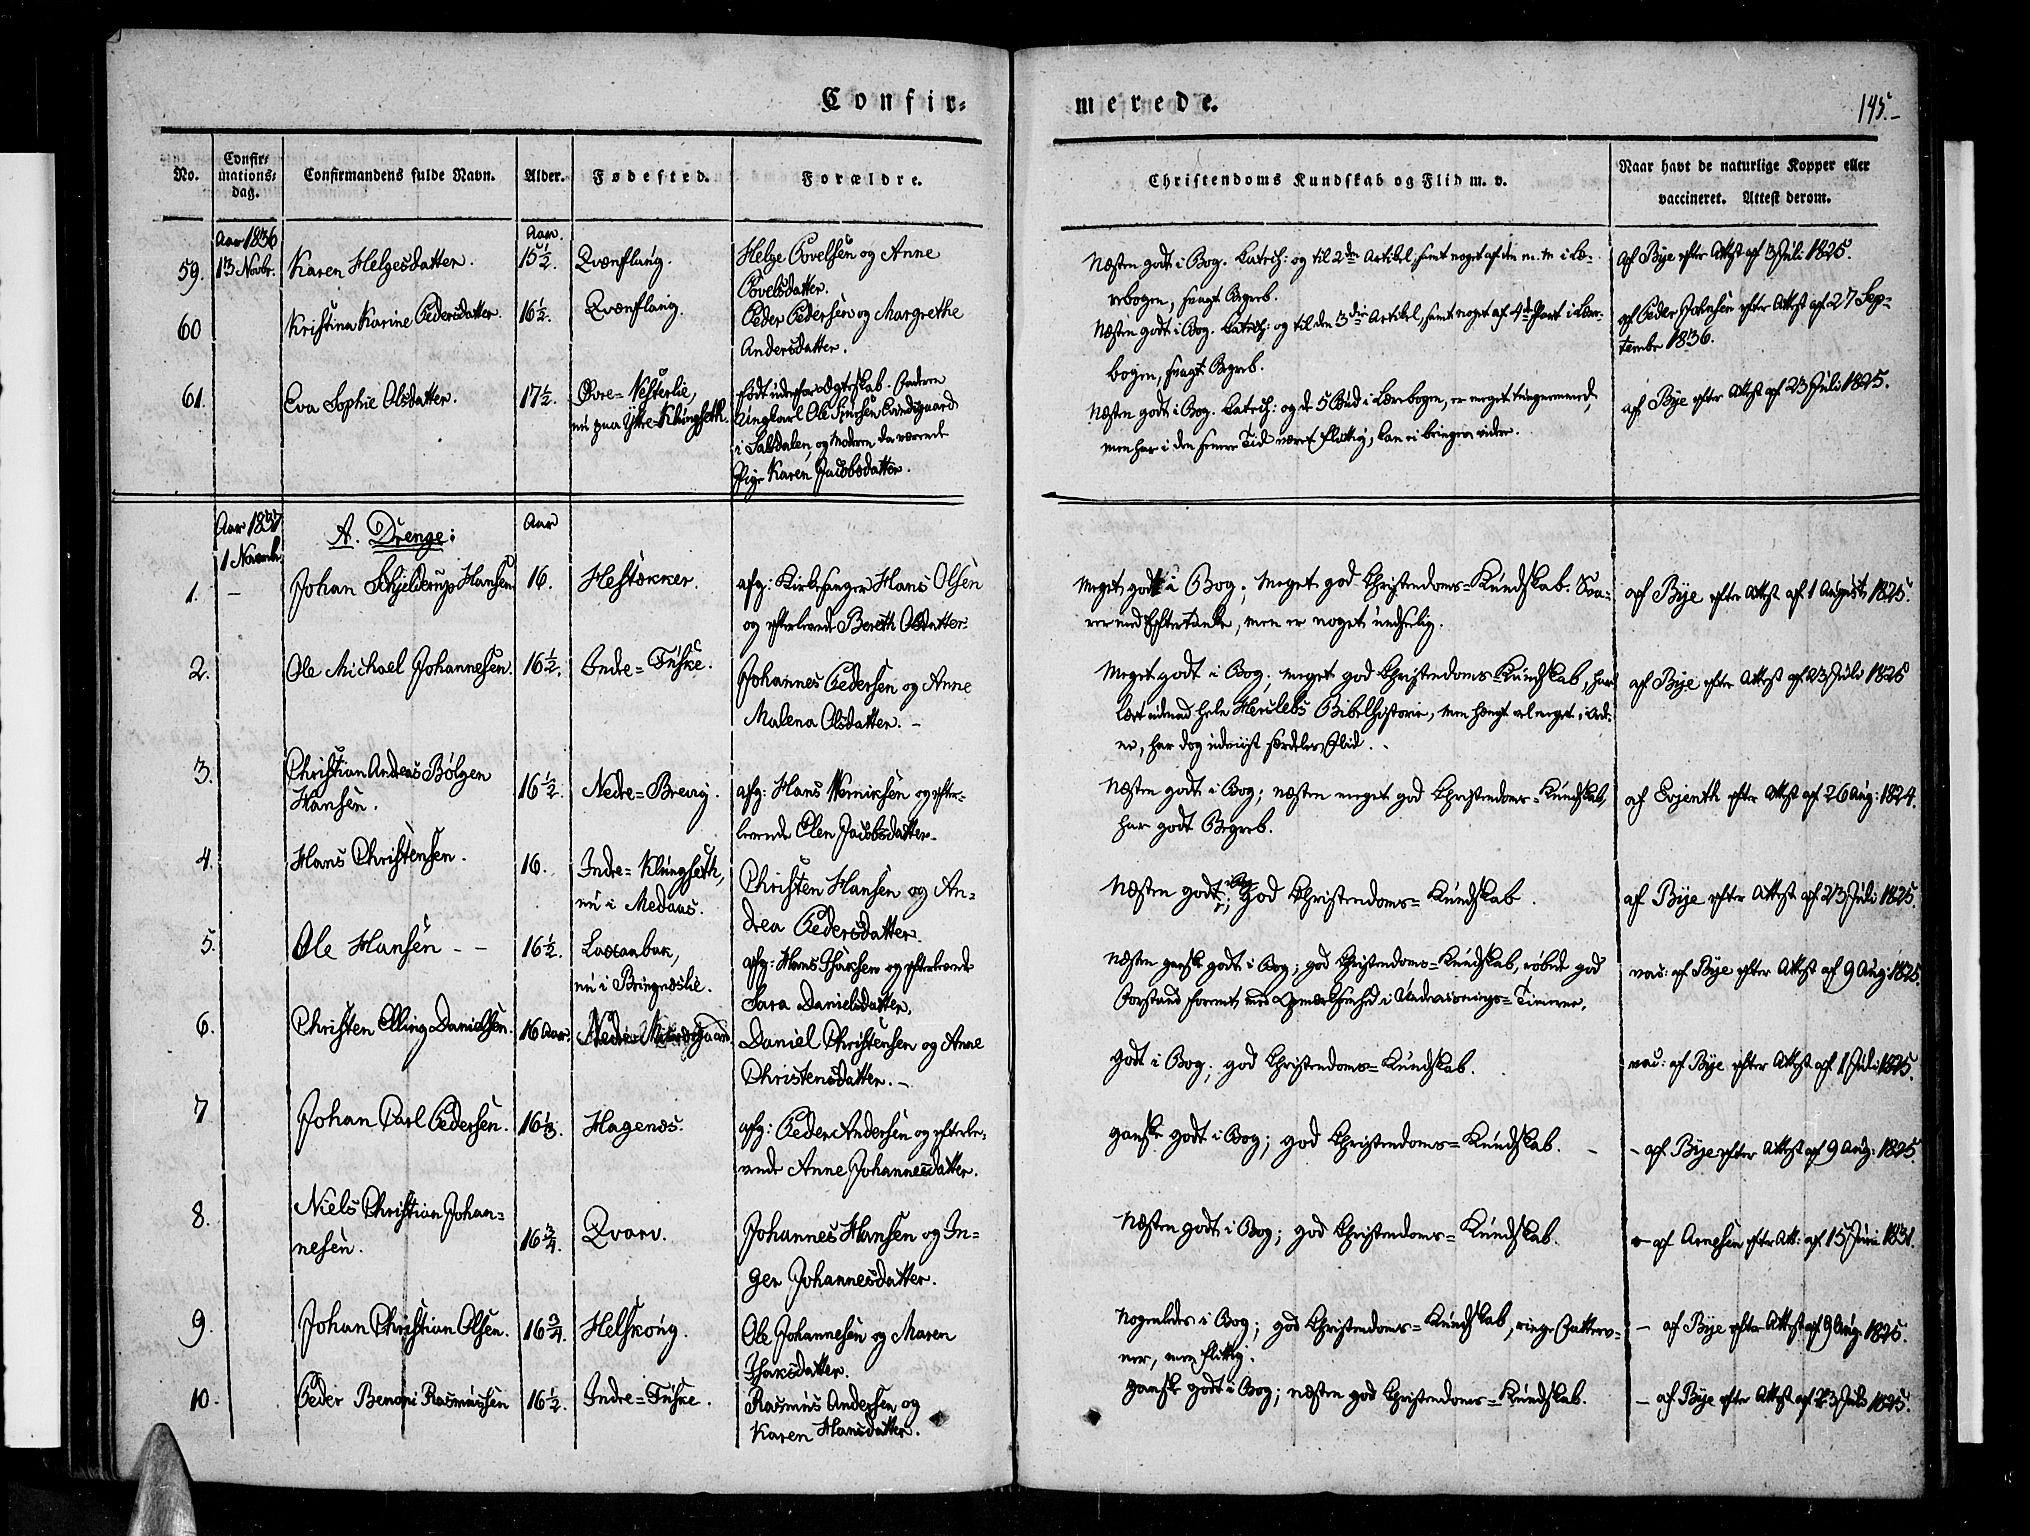 Confir=
merede.
145.-
No.
Confir=
mations=
dag.
Confirmandens fulde Navn.
Alder.
Fødested.
Forældre.
Christendoms Kundskab og Flid m. v.
Naar havt de naturlige Kopper eller
vaccineret. Attest derom.
Aar 1836
Aar.
59. 13 Novbr. Karen Helgesdatter. 15½. Qvænflaug. Helge Povelsen og Anne
Povelsdatter.
Næsten godt i Bog. Catech: og til 2den Artikel, samt noget af den m. m. i Læ-
rebogen, svagt Begreb.
af Bye efter Attest af 3 Juli 1825.
60 Kristina Karine Pedersdatter. 16½. Qvænflaug. Peder Pedersen og Margrethe
Andersdatter.
Næsten godt i Bog. Catech: og til den 3die Artikel, samt noget af 4de Part i Lære-
bogen, svagt Begreb.
af Peder Johnsen efter Attest af 27 Sep-
tember 1836.
61. Eva Sophie Olsdatter. 17½. Øvre-Nesterlie,
nu paa Ytre-Klungseth.
født udenfor Ægteskab. Faderen
Ungkarl Ole Evensen Evensgaard
i Saltdalen, og Moderen da værende
Pige Karen Jacobsdatter.
Næsten godt i Bog. Catech: og de 5 Bud i Lærebogen, er meget tungnemmed,
men har i den senere Tid været flittig, kan ei bringes videre.
af Bye efter Attest af 23 Juli 1825.
Aar 1837
1 Novemb.
A. Drenge:
Aar
1. - Johan Schjelderup Hansen 16. Hestækker. afg: Kirkesanger Hans Olsen
og efterlevende Bereth Olsdatter.
Meget godt i Bog; meget god Christendoms-Kundskab. Sva-
rer med Eftertanke, men er noget undselig.
af Bye efter Attest af 1 August 1825.
2. Ole Michael Johannesen. 16½. Indre-Fuske. Johannes Pedersen og Anne
Malena Olsdatter. -
Meget godt i Bog, meget god Christendoms-Kundskab, har
lært udenad hele Herslebs Bibelhistorie, men hængt vel meget i Ord-
ene, har dog udviist særdeles Flid.
af Bye efter Attest af 23 Juli 1825
3. Christian Andreas Bølgen
Hansen.
16½. Nedre-Brevig. afg: Hans Henriksen og efter-
levende Elen Jacobsdatter.
Næsten godt i Bog; næsten meget god Christendoms-Kundskab,
har godt Begreb.
af Evjenth efter Attest af 26 Aug: 1824.
4. Hans Christensen. 16. Indre-Klungseth,
nu i Medaas.
Christen Hansen og An-
drea Pedersdatter.
Næsten godt i Bog; god Christendoms-Kundskab.
af Bye efter Attest af 23 Juli 1825.
5. Ole Hansen - - 16½. Laxanbak,
nu i Bringeslie.
afg: Hans Isaksen og efterlevende
Sara Danielsdatter.
Næsten ganske godt i Bog; god Christendoms-Kundskab, røbede god
Forstand forenet med Opmærksomhed i Underviisnings-Timerne.
vac: af Bye efter Attest af 9 Aug: 1825.
6. Christen Elling Danielsen. 16 Aar. Daniel Christensen og Anne
Christensdatter. -
Godt i Bog; god Christendoms-Kundskab.
vac: af Bye efter Attest af 1 Juli 1825.
7 Johan Carl Pedersen. 16⅓. Hagenæs. afg: Peder Andersen og efterle-
vende Anne Johannesdatter.
ganske godt i Bog; god Christendoms-Kundskab. -
- af Bye efter Attest af 9 Aug: 1825.
8. Niels Christian Johan-
nesen.
16¾. Qvarv. Johannes Hansen og In-
ger Johannesdatter.
Næsten godt i Bog; god Christendoms-Kundskab.
- af Arnesen efter Att: af 15 Juni 1831.
9. Johan Christian Olsen. 16¾. Helskong. Ole Johannesen og Maren
Isaksdatter.
Nogenledes i Bog; god Christendoms-Kundskab, ringe Fatteev-
ner, men flittig.
- af Bye efter Attest af 9 Aug: 1825.
10. Peder Benoni Rasmussen 16½. Indre-Fuske. Rasmus Andersen og
Karen Hansdatter.
ganske godt i Bog; næsten god Christendoms-Kundskab.
- af Bye efter Attest af 23 Juli 1825.